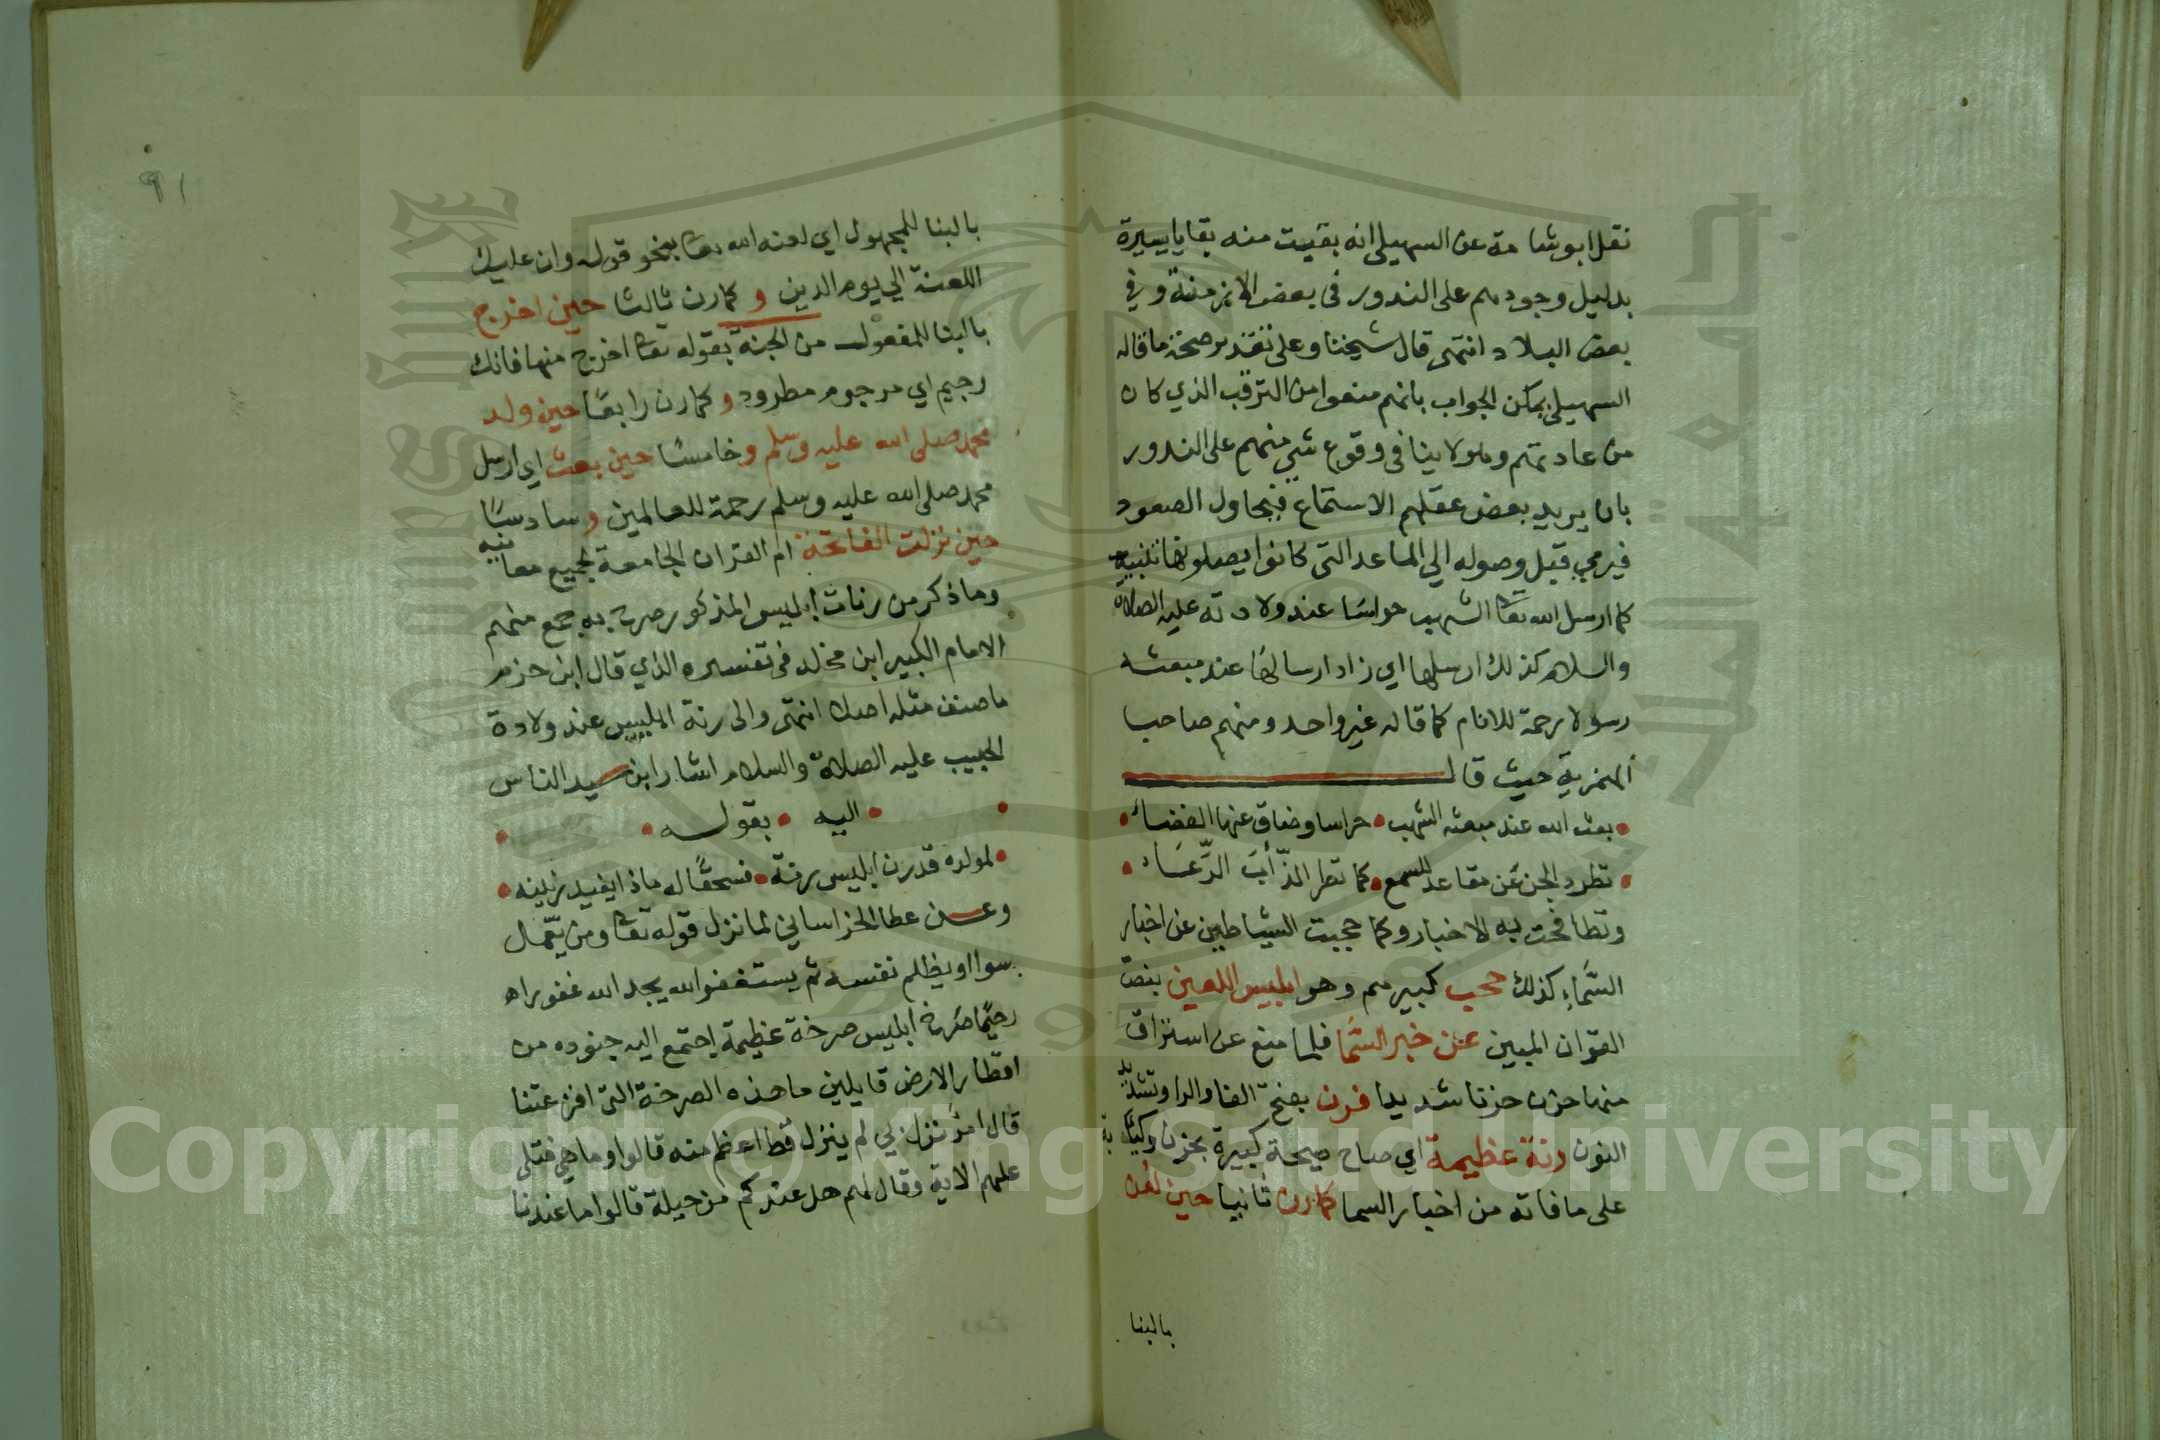 نقل ابو شامة عن السهيلي انه بقيت منه بقايا يسيرة
بدليل وجودهم على الندور في بعض الازمنة وفي
بعض البلاد انتهى قال شيخنا وعلى تقدير صحة ما قاله
السهيلي يمكن الجواب بانهم منعوا من الترقب الذي كان
من عادتهم وهو لا ينافي وقوع شي منهم على الندور
بان يريد بعض عقلهم الاستماع فيحاول الصعود
فيرمي قبل وصوله الي المقاعد التي كانوا يصلونها تنبيه
كما ارسل الله تعا الشهب حراسا عند ولادته عليه الصلاة
والسلام كذلك ارسلها اي زاد ارسالها عند مبعثه
رسولا رحمة للانام كما قاله غير واحد ومنهم صاحب
الهمزية حيث قال
بعث الله عند مبعثه الشهب • حراسا وضاق عنها الفضاء •
• تطرد الجن عن مقاعد للسمع • كما تطرد الذئاب الرعاء •
وتظافحت به الاخبار وكما حجبت الشياطين عن اخبار
السماء كذلك حجب كبيرهم وهو ابليس اللعين بنص
القران المبين عن خبر السما فلما منع عن استراق
منها حزن حزنا شديدا فرن بفتح الفا والرا وتشديد
النون رنة عظيمة اي صاح صيحة كبيرة بحزن وكآبة
على ما فاته من اخبار السما كما رن ثانيا حين لعن
بالبنا
٩١
بالبنا للمجهول اي لعنه الله تعا بنحو قوله وان عليك
اللعنة الي يوم الدين و كما رن ثالثا حين اخرج
بالبنا للمفعول من الجنة بقوله تعا اخرج منها فانك
رجيم اي مرجوم مطرود و كما رن رابعا حين ولد
محمد صلى الله عليه وسلم و خامسا حين بعث اي ارسل
محمد صلى الله عليه وسلم رحمة للعالمين و سادسا
حين نزلت الفاتحة ام القران الجامعة لجميع معانيه
وما ذكر من رنات ابليس المذكور صرح به جمع منهم
الامام الكبير ابن مخلد في تفسيره الذي قال ابن حزم
ما صنف مثله احد انتهى والى رنة ابليس عند ولادة
الحبيب عليه الصلاة والسلام اشار ابن سيد الناس
• اليه • بقوله •
• لمولده قد رن ابليس رنة • فسحقا له ماذا يفيد رنينه •
وعن عطا الخراساني لما نزل قوله تعا ومن يعمل
سوا او يظلم نفسه ثم يستغفر الله يجد الله غفورا
رحيما صرخ ابليس صرخة عظيمة اجتمع اليه جنوده من
اقطار الارض قايلين ما هذه الصرخة التي افزعتنا
قال امر نزل بي لم ينزل قط اعظم منه قالوا وما هي فتلى
عليهم الاية وقال لهم هل عندكم من حيلة قالوا ما عندنا
Copyright © King Saud University